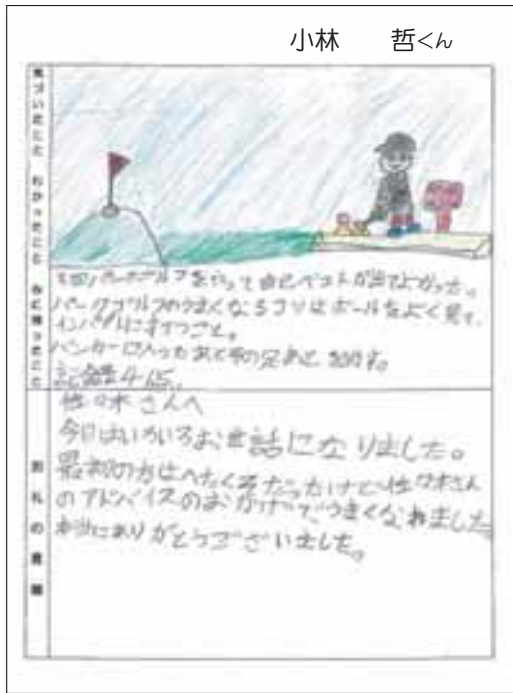 小林 哲くん
気づいたこと わかったこと 心に残ったこと
今回パークゴルフをやって自己ベストが出てよかった。
パークゴルフのうまくなるコツはボールをよく見て、
インパクトにすること。
バンカーに入ったあとその足あとを
記録
お礼の言葉
佐々木さんへ
今日はいろいろお世話になりました。
最初の方はへたくそだったけど佐々木さん
のアドバイスのおかげでうまくなれました。
本当にありがとうございました。